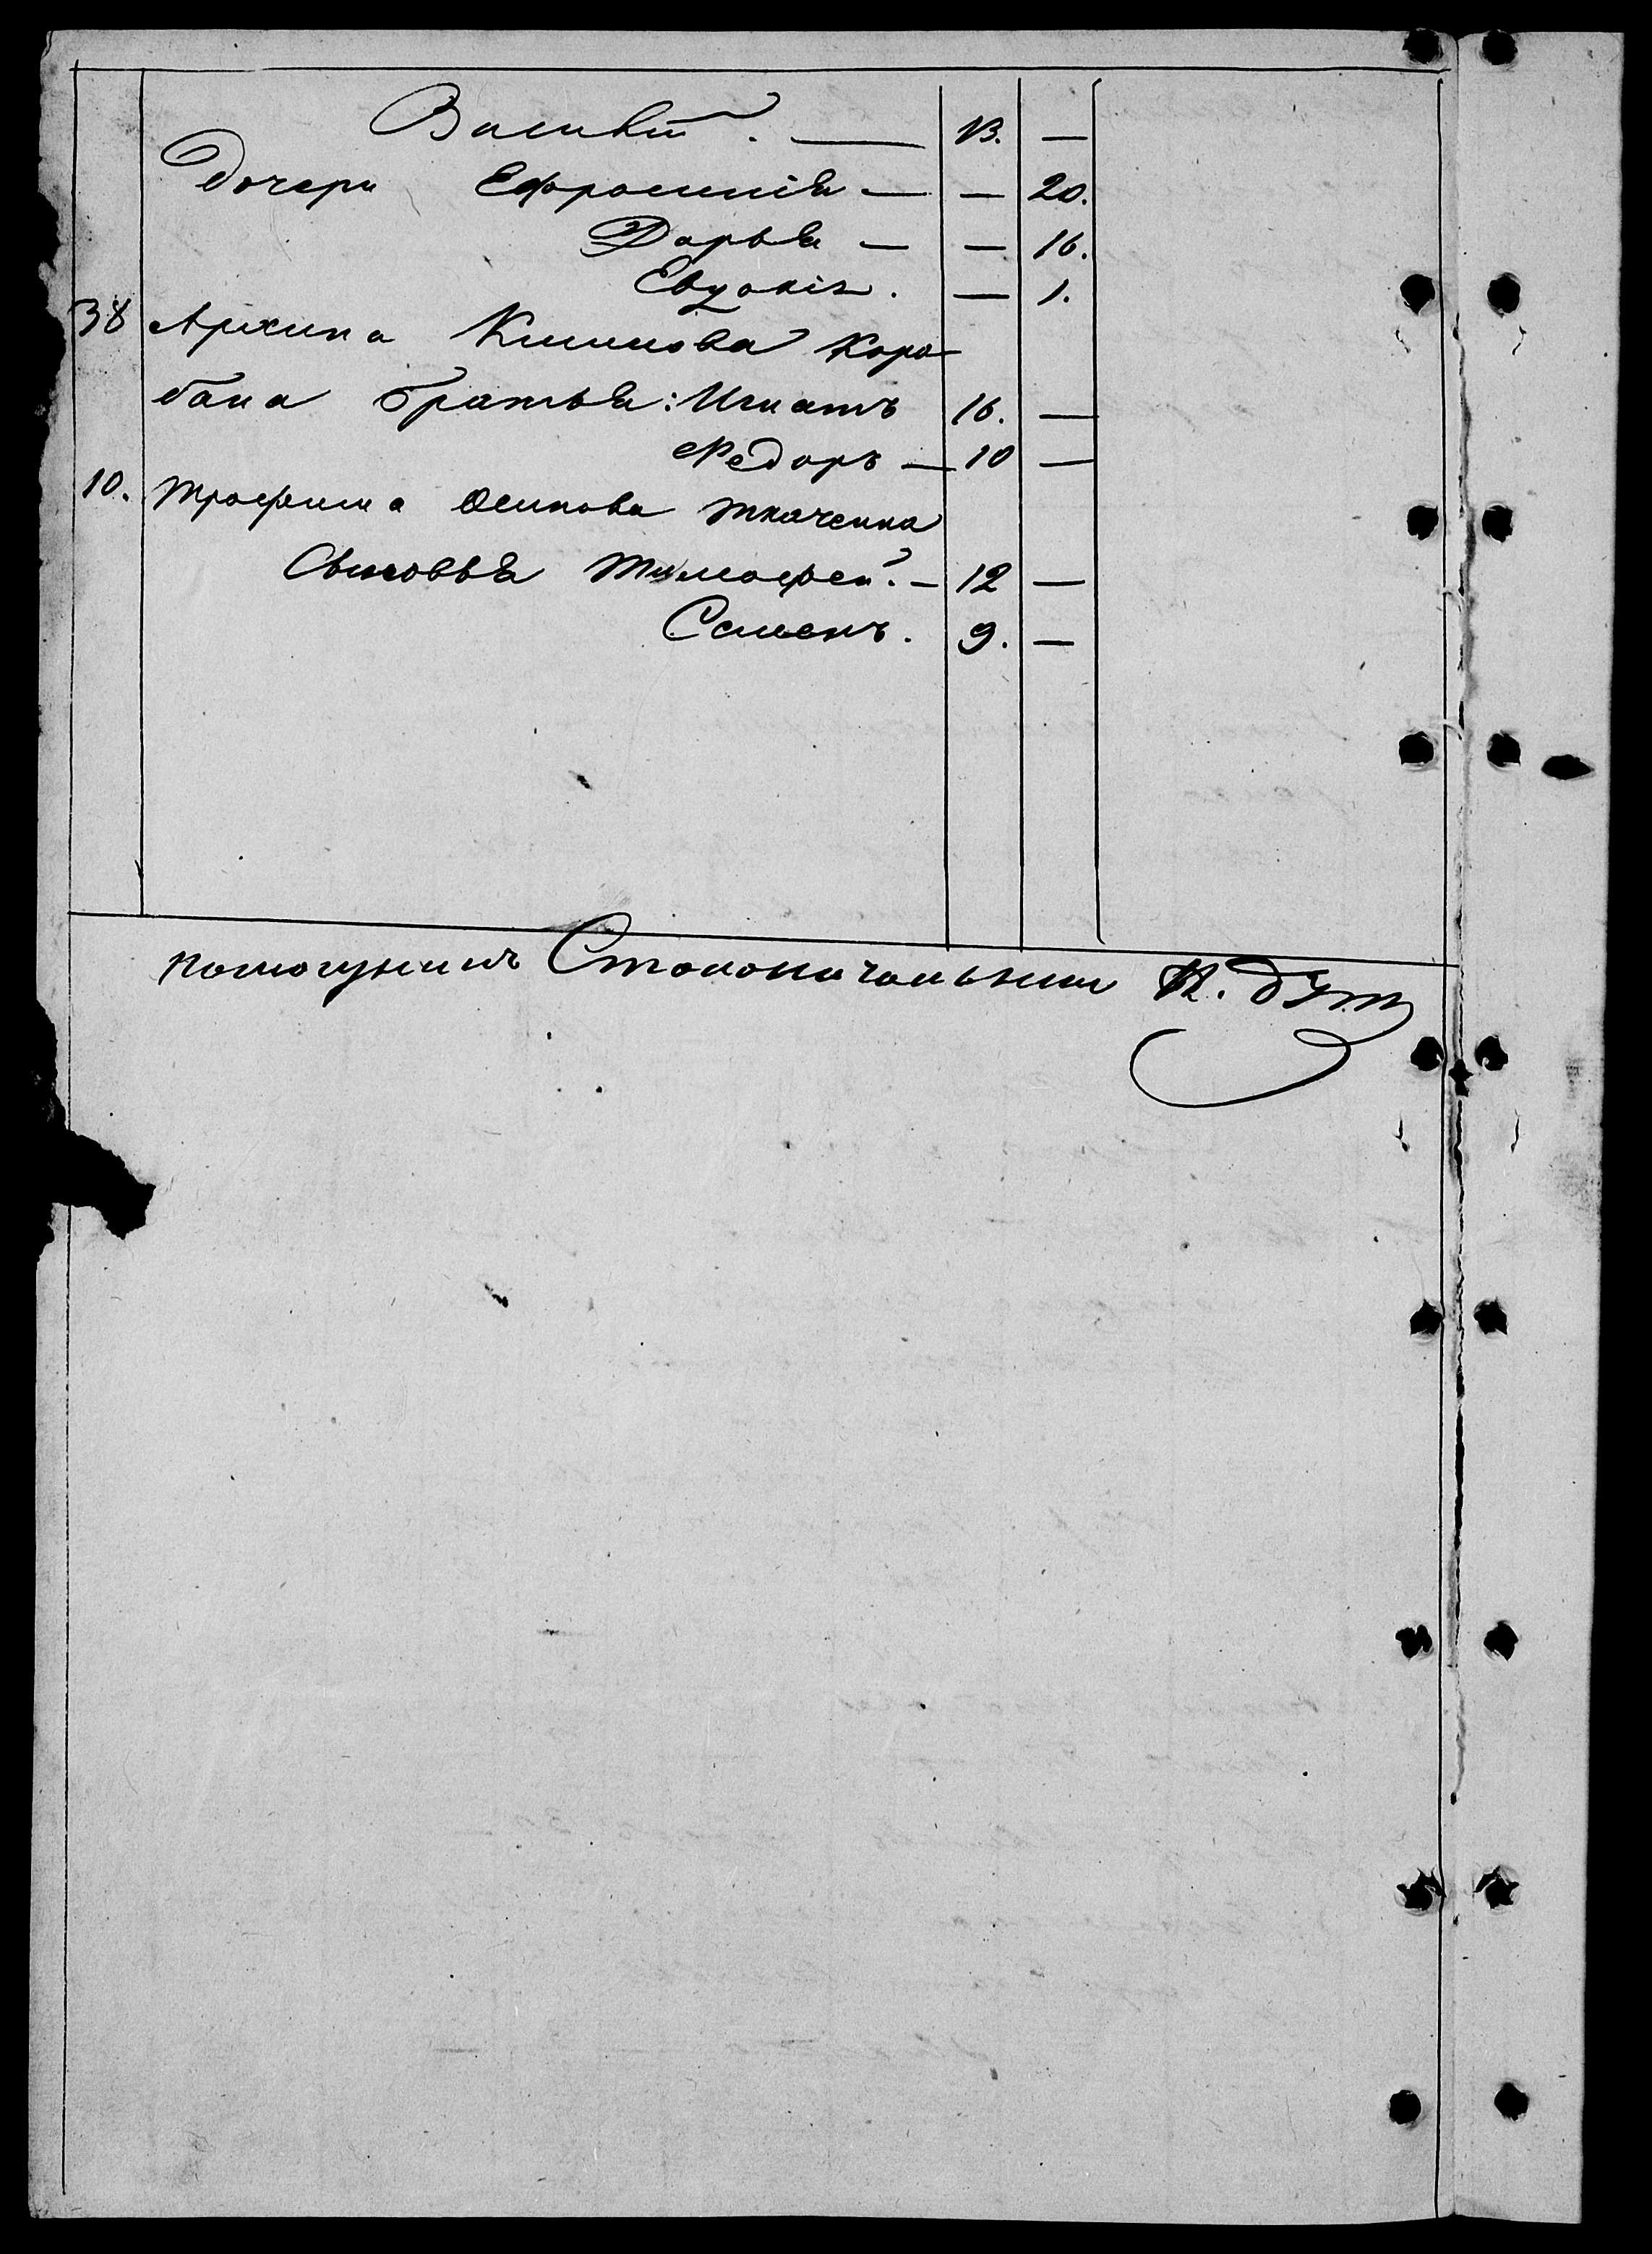 Василій. — 13. —
Дочери Ефросинія — — 20.
Дарья — — 16.
Евдокія. — 1.
38 Архипа Климова Коро-
бана братья: Игнатъ 16. —
Федоръ — 10 —
10. Трофима Осипова Ткаченка
Сыновья Тимофей. — 12 —
Семенъ. 9. —
Столоначальник